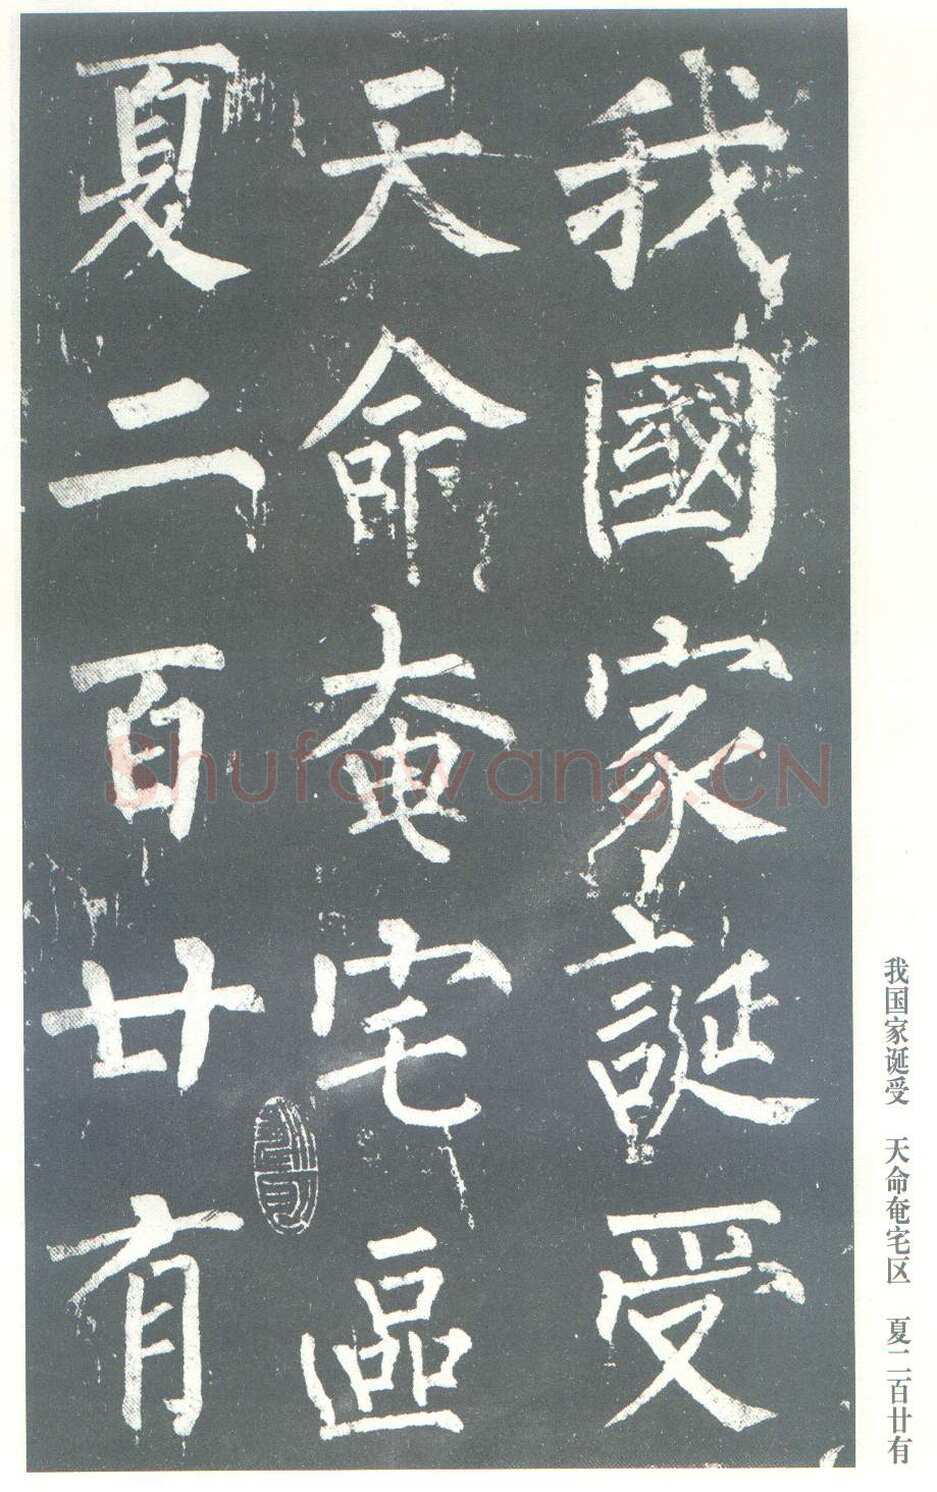 我國家誕受
天命奄宅區
夏二百廿有
我国家诞受　天命奄宅区　夏二百廿有
Shufawang.CN